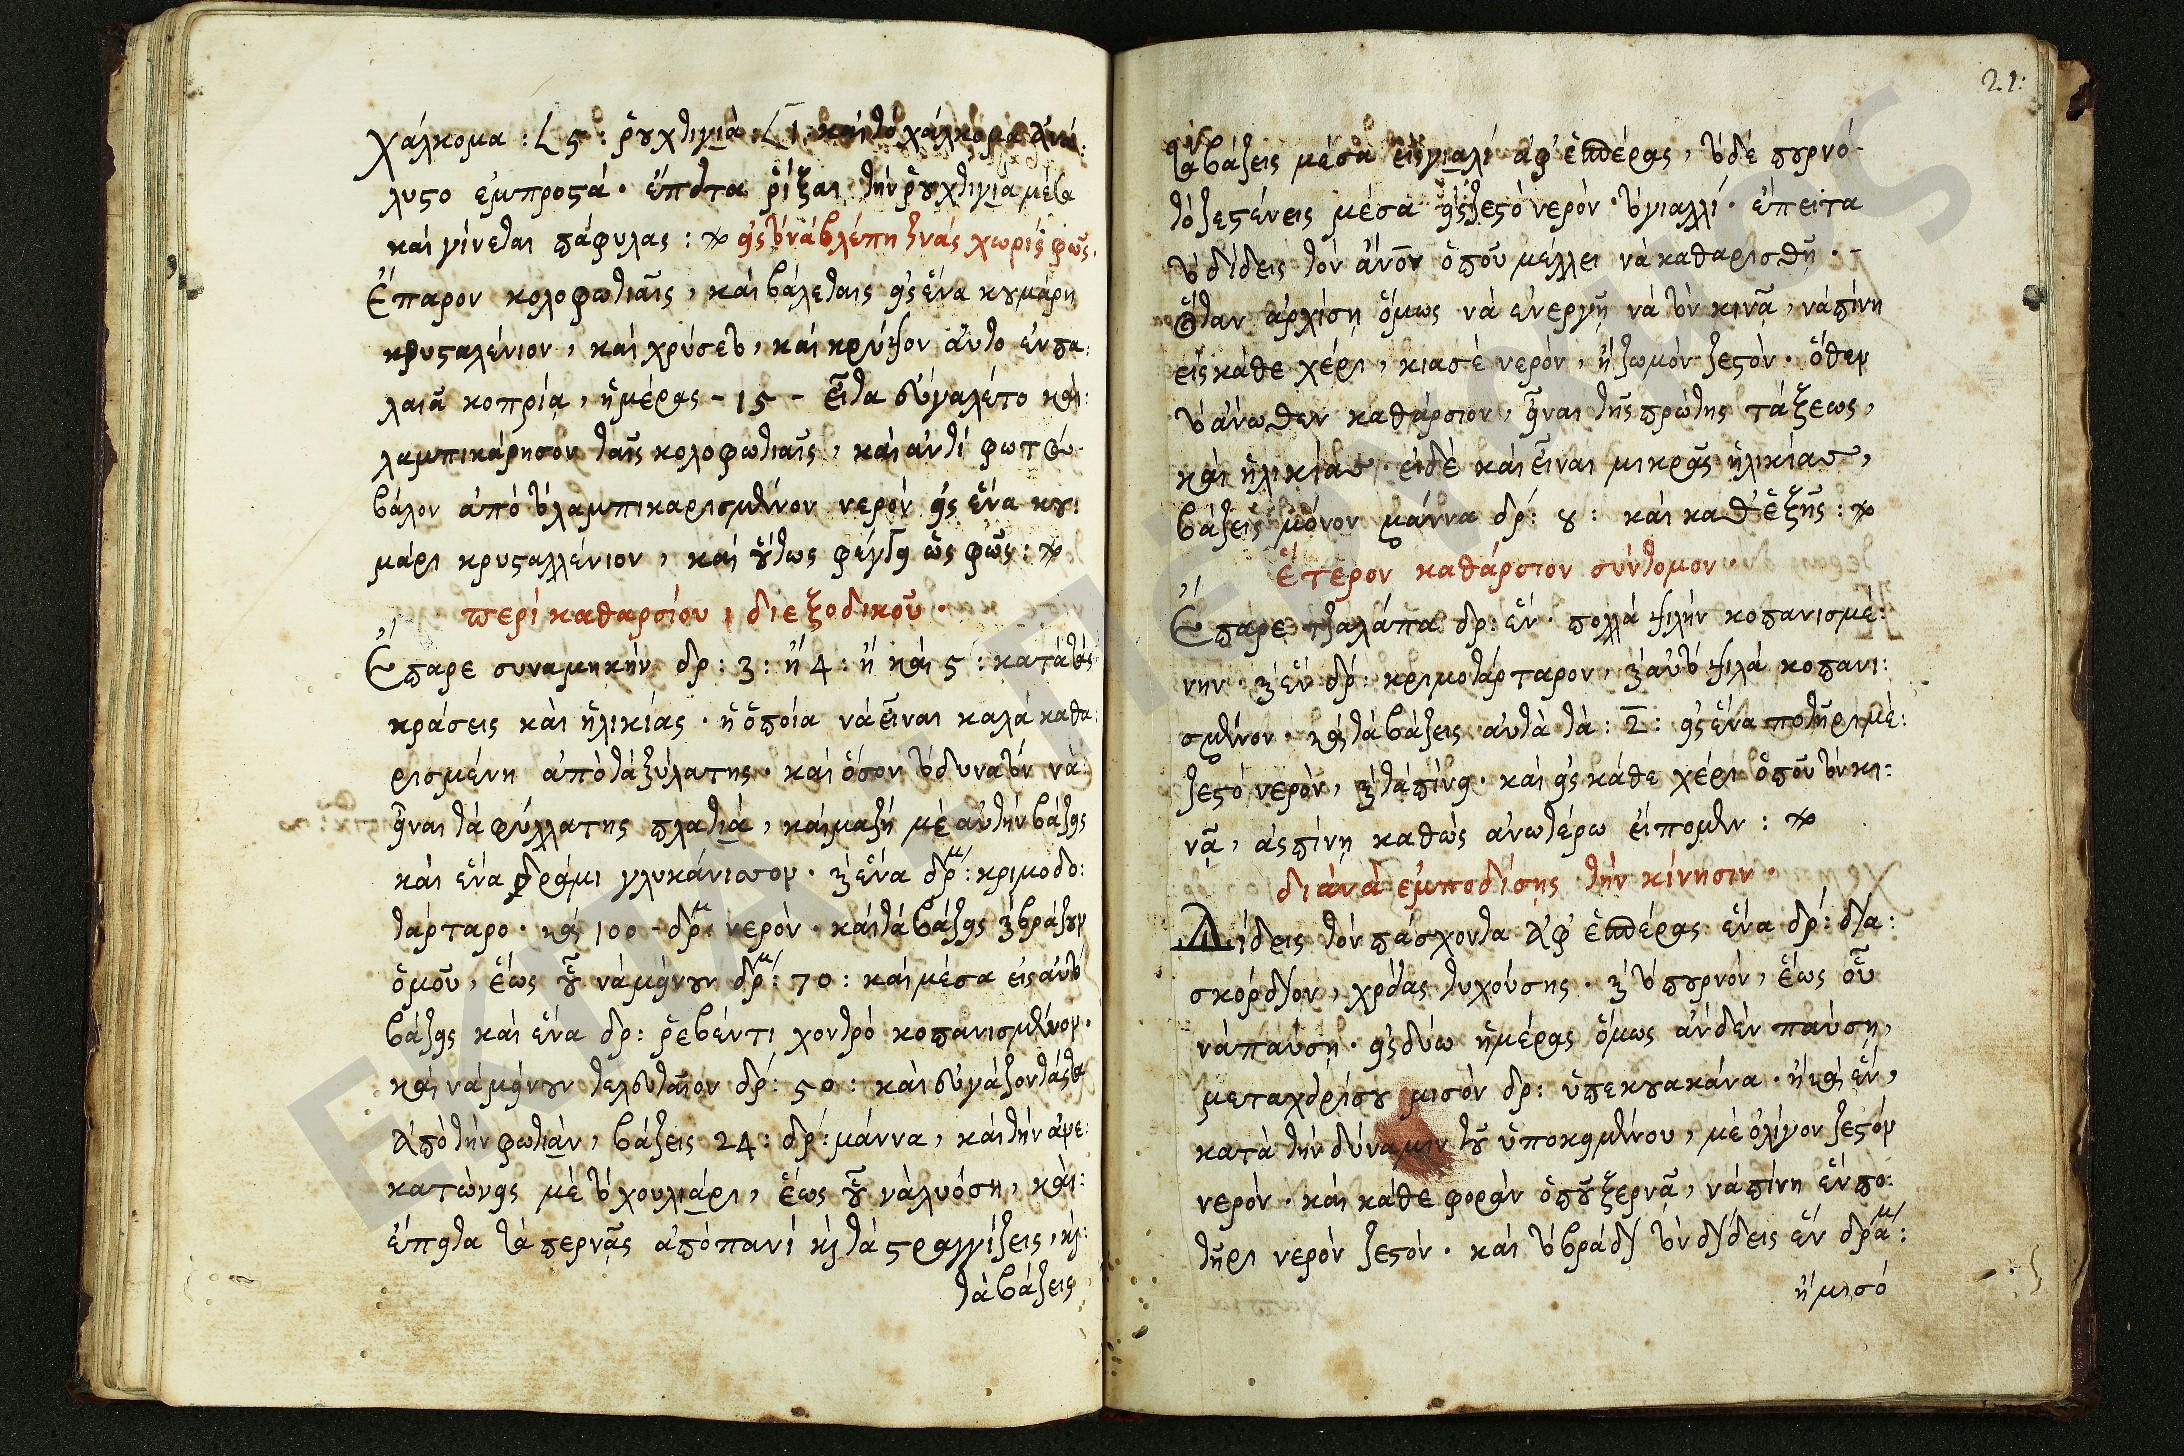 χάλκομα : 5 : ῥουχτιγιὰ : 1 καὶ τὸ χάλκομα ἀνά:
λυσο ἐμπροστά · ἔπειτα ῥίξαι τὴν ῥουχτιγιὰ μέσα
καὶ γίνεται πάφυλας : εἰς τὸ νὰ βλέπῃ ἕνας χωρὶς φῶς.
Ἔπαρον κολοφωτιαῖς, καὶ βάλεταις εἰς ἕνα κουμάρη
κρυσταλένιον, καὶ χρύσετο, καὶ κρύψον αὐτο ἐν πα:
λαιᾷ κοπρίᾳ, ἡμέρας - 15 - εἶτα εὔγαλέτο καὶ:
λαμπικάρησον ταῖς κολοφωτιαῖς, καὶ ἀντὶ φωτὸς
βάλον ἀπὸ τὸ λαμπικαρισμένον νερὸν εἰς ἕνα κου:
μάρι κρυσταλλένιον, καὶ οὕτως φέγγει ὡς φῶς :
περὶ καθαρσίου διεξοδικοῦ ·
Ἔπαρε συναμηκὴν δρ : 3 : ἢ 4 : ἢ καὶ 5 : κατὰ τὰς
κράσεις καὶ ἡλικίας · ἡ ὁποία νὰ εἶναι καλὰ καθα:
ρισμένη ἀπὸ τὰ ξύλατης · καὶ ὅσον τὸ δυνατὸν νὰ:
εἶναι τὰ φύλλατης πλατιὰ, καὶ μαζὴ μὲ αὐτὴν βάζεις
καὶ ἕνα δράμι γλυκάνισον · καὶ ἕνα δρμ : κριμοδο:
τάρταρο · καὶ 100 - δρμ νερὸν · καὶ τὰ βάζεις καὶ βράζουν
ὁμοῦ, ἕως οὗ νὰ μείνουν δρμ : 70 : καὶ μέσα εἰς αὐτὸ
βάζεις καὶ ἕνα δρ : ῥεβέντι χοντρὸ κοπανισμένον ·
καὶ νὰ μείνουν τελευταῖον δρ : 50 : καὶ εὐγάζοντάς τα
ἀπὸ τὴν φωτιὰν, βάζεις 24 : δρ : μάννα, καὶ τὴν ἀνε:
κατώνεις μὲ τὸ χουλιάρι, ἕως οὗ νὰ λυόσῃ, καὶ:
ἔπειτα τὰ περνᾷς ἀπὸ πανὶ καὶ τὰ στραγγίζεις, καὶ:
τὰ βάζεις
21:
τὰ βάζεις μέσα εἰς γιαλὶ ἀφ' ἑσπέρας, τὸ δὲ πουρνό-
τὸ ζεσταίνεις μέσα εἰς ζεστὸ νερὸν · τὸ γιαλλί · ἔπειτα
τὸ δίδεις τὸν ἄνον ὁποῦ μέλλει νὰ καθαρισθῇ · -
Ὅταν ἀρχίσῃ ὅμως νὰ ἐνεργῇ νὰ τὸν κινᾷ, νὰ πίνῃ
εἰς κάθε χέρι, κιασὲ νερὸν, ἢ ζωμὸν ζεστόν · ὅθεν
τὸ ἄνωθεν καθάρσιον, εἶναι τῆς πρώτης τάξεως,
καὶ ἡλικίας · εἰδὲ καὶ εἶναι μικρᾶς ἡλικίας,
βάζεις μόνον μάννα δρ : 8 : καὶ καθ' ἑξῆς :
ἕτερον καθάρσιον σύντομον ·
Ἔπαρε τζαλάπα δρ : ἓν · πολλὰ ψιλὴν κοπανισμέ:
νην · καὶ ἓν δρ : κριμοτάρταρον, καὶ αὐτὸ ψιλὰ κοπανι:
σμένον · καὶ τὰ βάζεις αὐτὰ τὰ : 2 : εἰς ἕνα ποτῆρι μὲ:
ζεστὸ νερὸν, καὶ τὰ πίνει · καὶ εἰς κάθε χέρι ὁποῦ τὸν κι:
νᾷ, ἂς πίνῃ καθὼς ἀνωτέρω εἴπομεν :
διὰ νὰ ἐμποδίσῃς τὴν κίνησιν ·
Δίδεις τὸν πάσχοντα ἀφ' ἑσπέρας ἕνα δρ : δια:
σκόρδιον, χρείας τυχούσης · καὶ τὸ πουρνὸν, ἕως οὗ
νὰ παύσῃ · εἰς δύω ἡμέρας ὅμως ἂν δὲν παύσῃ,
μεταχειρίσου μισὸν δρ : ὑπεκουακάνα · ἢ καὶ ἓν,
κατὰ τὴν δύναμιν τοῦ ὑποκειμένου, μὲ ὀλίγον ζεστὸν
νερὸν · καὶ κάθε φορὰν ὁποῦ ξερνᾷ, νὰ πίνῃ ἓν πο:
τῆρι νερὸν ζεστόν · καὶ τὸ βράδι τὸν δίδεις ἓν δραμ :
ἢ μισὸ